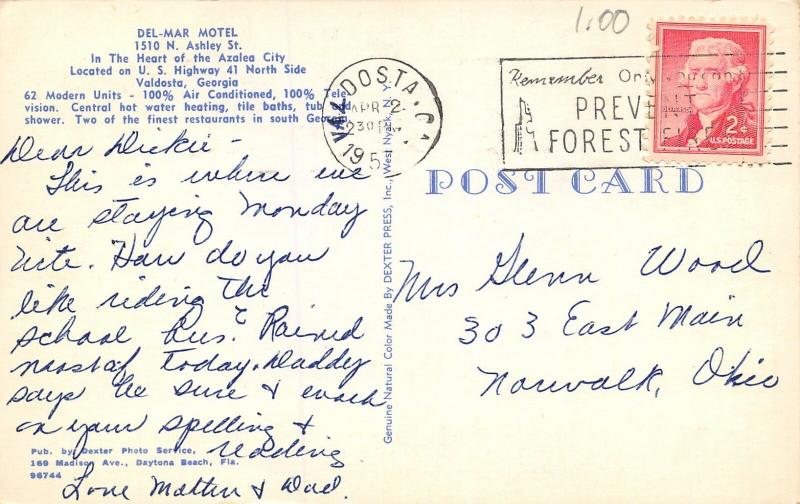 1.00
DEL-MAR MOTEL
1510 N. Ashley St.
In The Heart of the Azalea City
Located on U. S. Highway 41 North Side
Valdosta, Georgia
62 Modern Units - 100% Air Conditioned, 100% Tele-
vision. Central hot water heating, tile baths, tub and
shower. Two of the finest restaurants in south Georgia
VALDOSTA, GA.
APR 2
230 PM
195
Remember Only
PREVENT
FOREST FIRES
JEFFERSON
2¢
U.S. POSTAGE
POST CARD
Dear Dickie -
This is where we
are staying Monday
nite. How do you
like riding the
school bus. Rained
most of today. Daddy
says be sure & work
on your spelling &
reading
Love Mother & Dad.
Mrs Glenn Wood
303 East Main
Norwalk, Ohio
Genuine Natural Color Made By DEXTER PRESS, Inc., West Nyack, N. Y.
Pub. by Dexter Photo Service,
169 Madison Ave., Daytona Beach, Fla.
96744